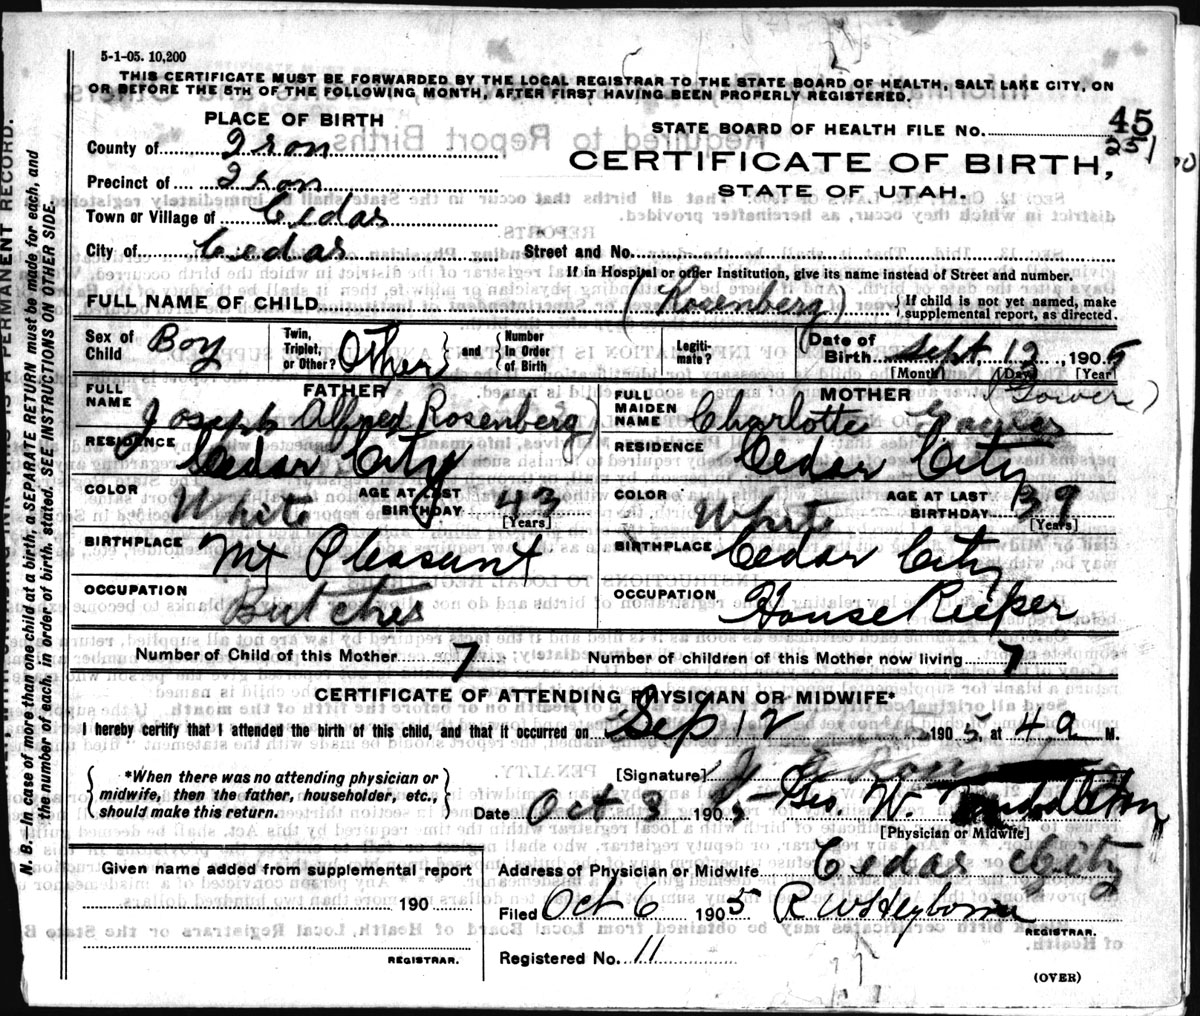 5-1-05. 10,200
THIS CERTIFICATE MUST BE FORWARDED BY THE LOCAL REGISTRAR TO THE STATE BOARD OF HEALTH, SALT LAKE CITY, ON
OR BEFORE THE 5TH OF THE FOLLOWING MONTH, AFTER FIRST HAVING BEEN PROPERLY REGISTERED.
PLACE OF BIRTH
STATE BOARD OF HEALTH FILE No. 45
251
County of Iron
CERTIFICATE OF BIRTH,
Precinct of Iron
STATE OF UTAH.
Town or Village of Cedar
City of Cedar Street and No.
If in Hospital or other Institution, give its name instead of Street and number.
FULL NAME OF CHILD (Rosenberg) {If child is not yet named, make
supplemental report, as directed.
Sex of Child Boy Twin, Triplet, or Other? Other } and { Number in Order of Birth Legiti-mate? Date of Birth Sept 12, 1905
[Month] [Day] [Year]
FATHER MOTHER (Gower)
FULL NAME Joseph Alfred Rosenberg FULL MAIDEN NAME Charlotte
RESIDENCE Cedar City RESIDENCE Cedar City
COLOR White AGE AT LAST BIRTHDAY 43 [Years] COLOR White AGE AT LAST BIRTHDAY 39 [Years]
BIRTHPLACE Mt Pleasant BIRTHPLACE Cedar City
OCCUPATION Butcher OCCUPATION House Keeper
Number of Child of this Mother 7 Number of children of this Mother now living 7
CERTIFICATE OF ATTENDING PHYSICIAN OR MIDWIFE*
I hereby certify that I attended the birth of this child, and that it occurred on Sep 12 1905, at 4 a M.
{ *When there was no attending physician or
midwife, then the father, householder, etc.,
should make this return. }
[Signature]
Date Oct 3 1905 Geo. W. Middleton
[Physician or Midwife]
Given name added from supplemental report
Address of Physician or Midwife Cedar City
190
Filed Oct 6 1905 R W Heyborne
REGISTRAR.
REGISTRAR.
Registered No. 11
(OVER)
N. B.—In case of more than one child at a birth, a SEPARATE RETURN must be made for each, and
the number of each, in order of birth, stated. SEE INSTRUCTIONS ON OTHER SIDE.
IS A PERMANENT RECORD.